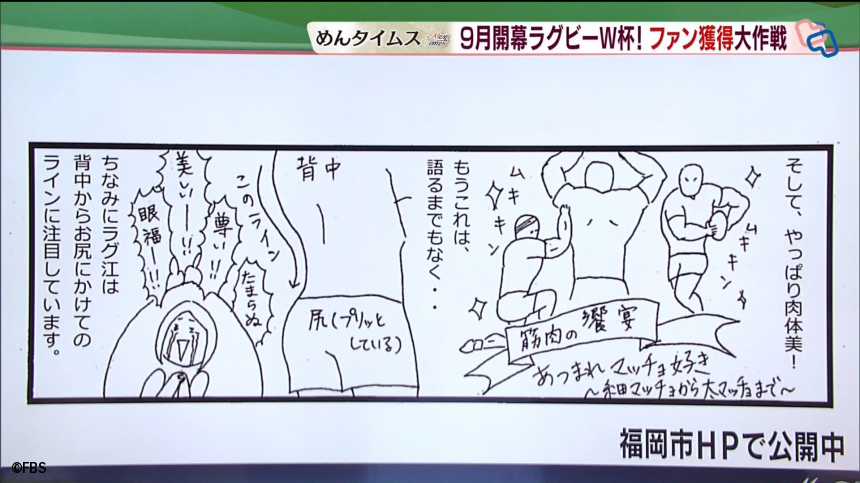 めんタイムス
9月開幕ラグビーW杯!ファン獲得大作戦
そして、やっぱり肉体美!
ムキキン
ムキキン
筋肉の饗宴
あつまれマッチョ好き
~細マッチョから太マッチョまで~
もうこれは、
語るまでもなく・・
背中
尻(プリッと
している)
このライン
たまらぬ
尊い!!
美しいー!!
眼福ー!!
ちなみにラグ江は
背中からお尻にかけての
ラインに注目しています。
福岡市HPで公開中
©FBS